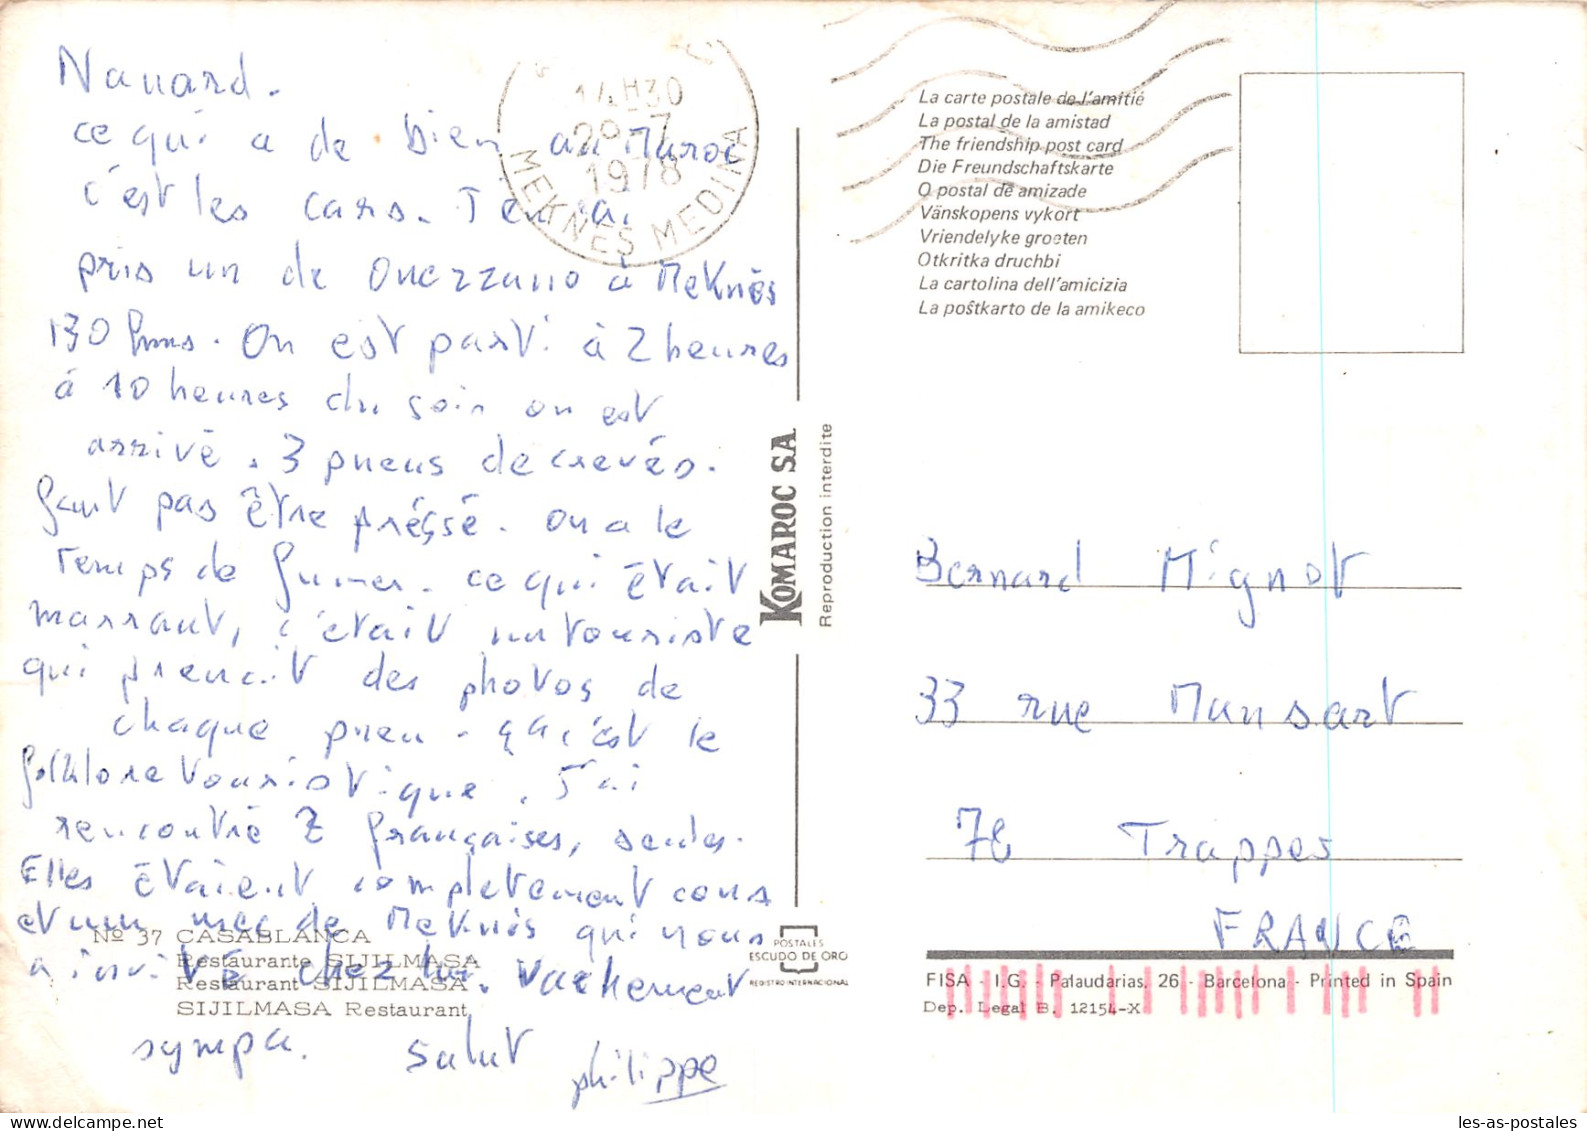 Nanard.
ce qui a de bien au Maroc
c'est les cars. J'en ai
pris un de Ouezzano à Meknès
130 kms. On est parti à 2 heures
à 10 heures du soir on est
arrivé. 3 pneus de crevés.
faut pas être préssé. On a le
temps de fumer. ce qui était
marrant, c'était un touriste
qui prenait des photos de
chaque pneu. ça c'est le
folklore touristique. J'ai
rencontré 2 françaises, seules.
Elles étaient completement cons
et un mec de Meknès qui nous
a invité chez lui. Vachement
sympa. Salut philippe
Nº 37 CASABLANCA
Restaurante SIJILMASA
Restaurant SIJILMASA
SIJILMASA Restaurant
14H30
28-7
1978
MEKNES MEDINA
KOMAROC SA
Reproduction interdite
POSTALES
ESCUDO DE ORO
REGISTRO INTERNACIONAL
La carte postale de l'amitié
La postal de la amistad
The friendship post card
Die Freundschaftskarte
O postal de amizade
Vänskopens vykort
Vriendelyke groeten
Otkritka druchbi
La cartolina dell'amicizia
La poŝtkarto de la amikeco
Bernard Mignot
33 rue Mansart
78 Trappes
FRANCE
FISA - I.G. - Palaudarias, 26 - Barcelona - Printed in Spain
Dep. Legal B. 12154-X
les-as-postales